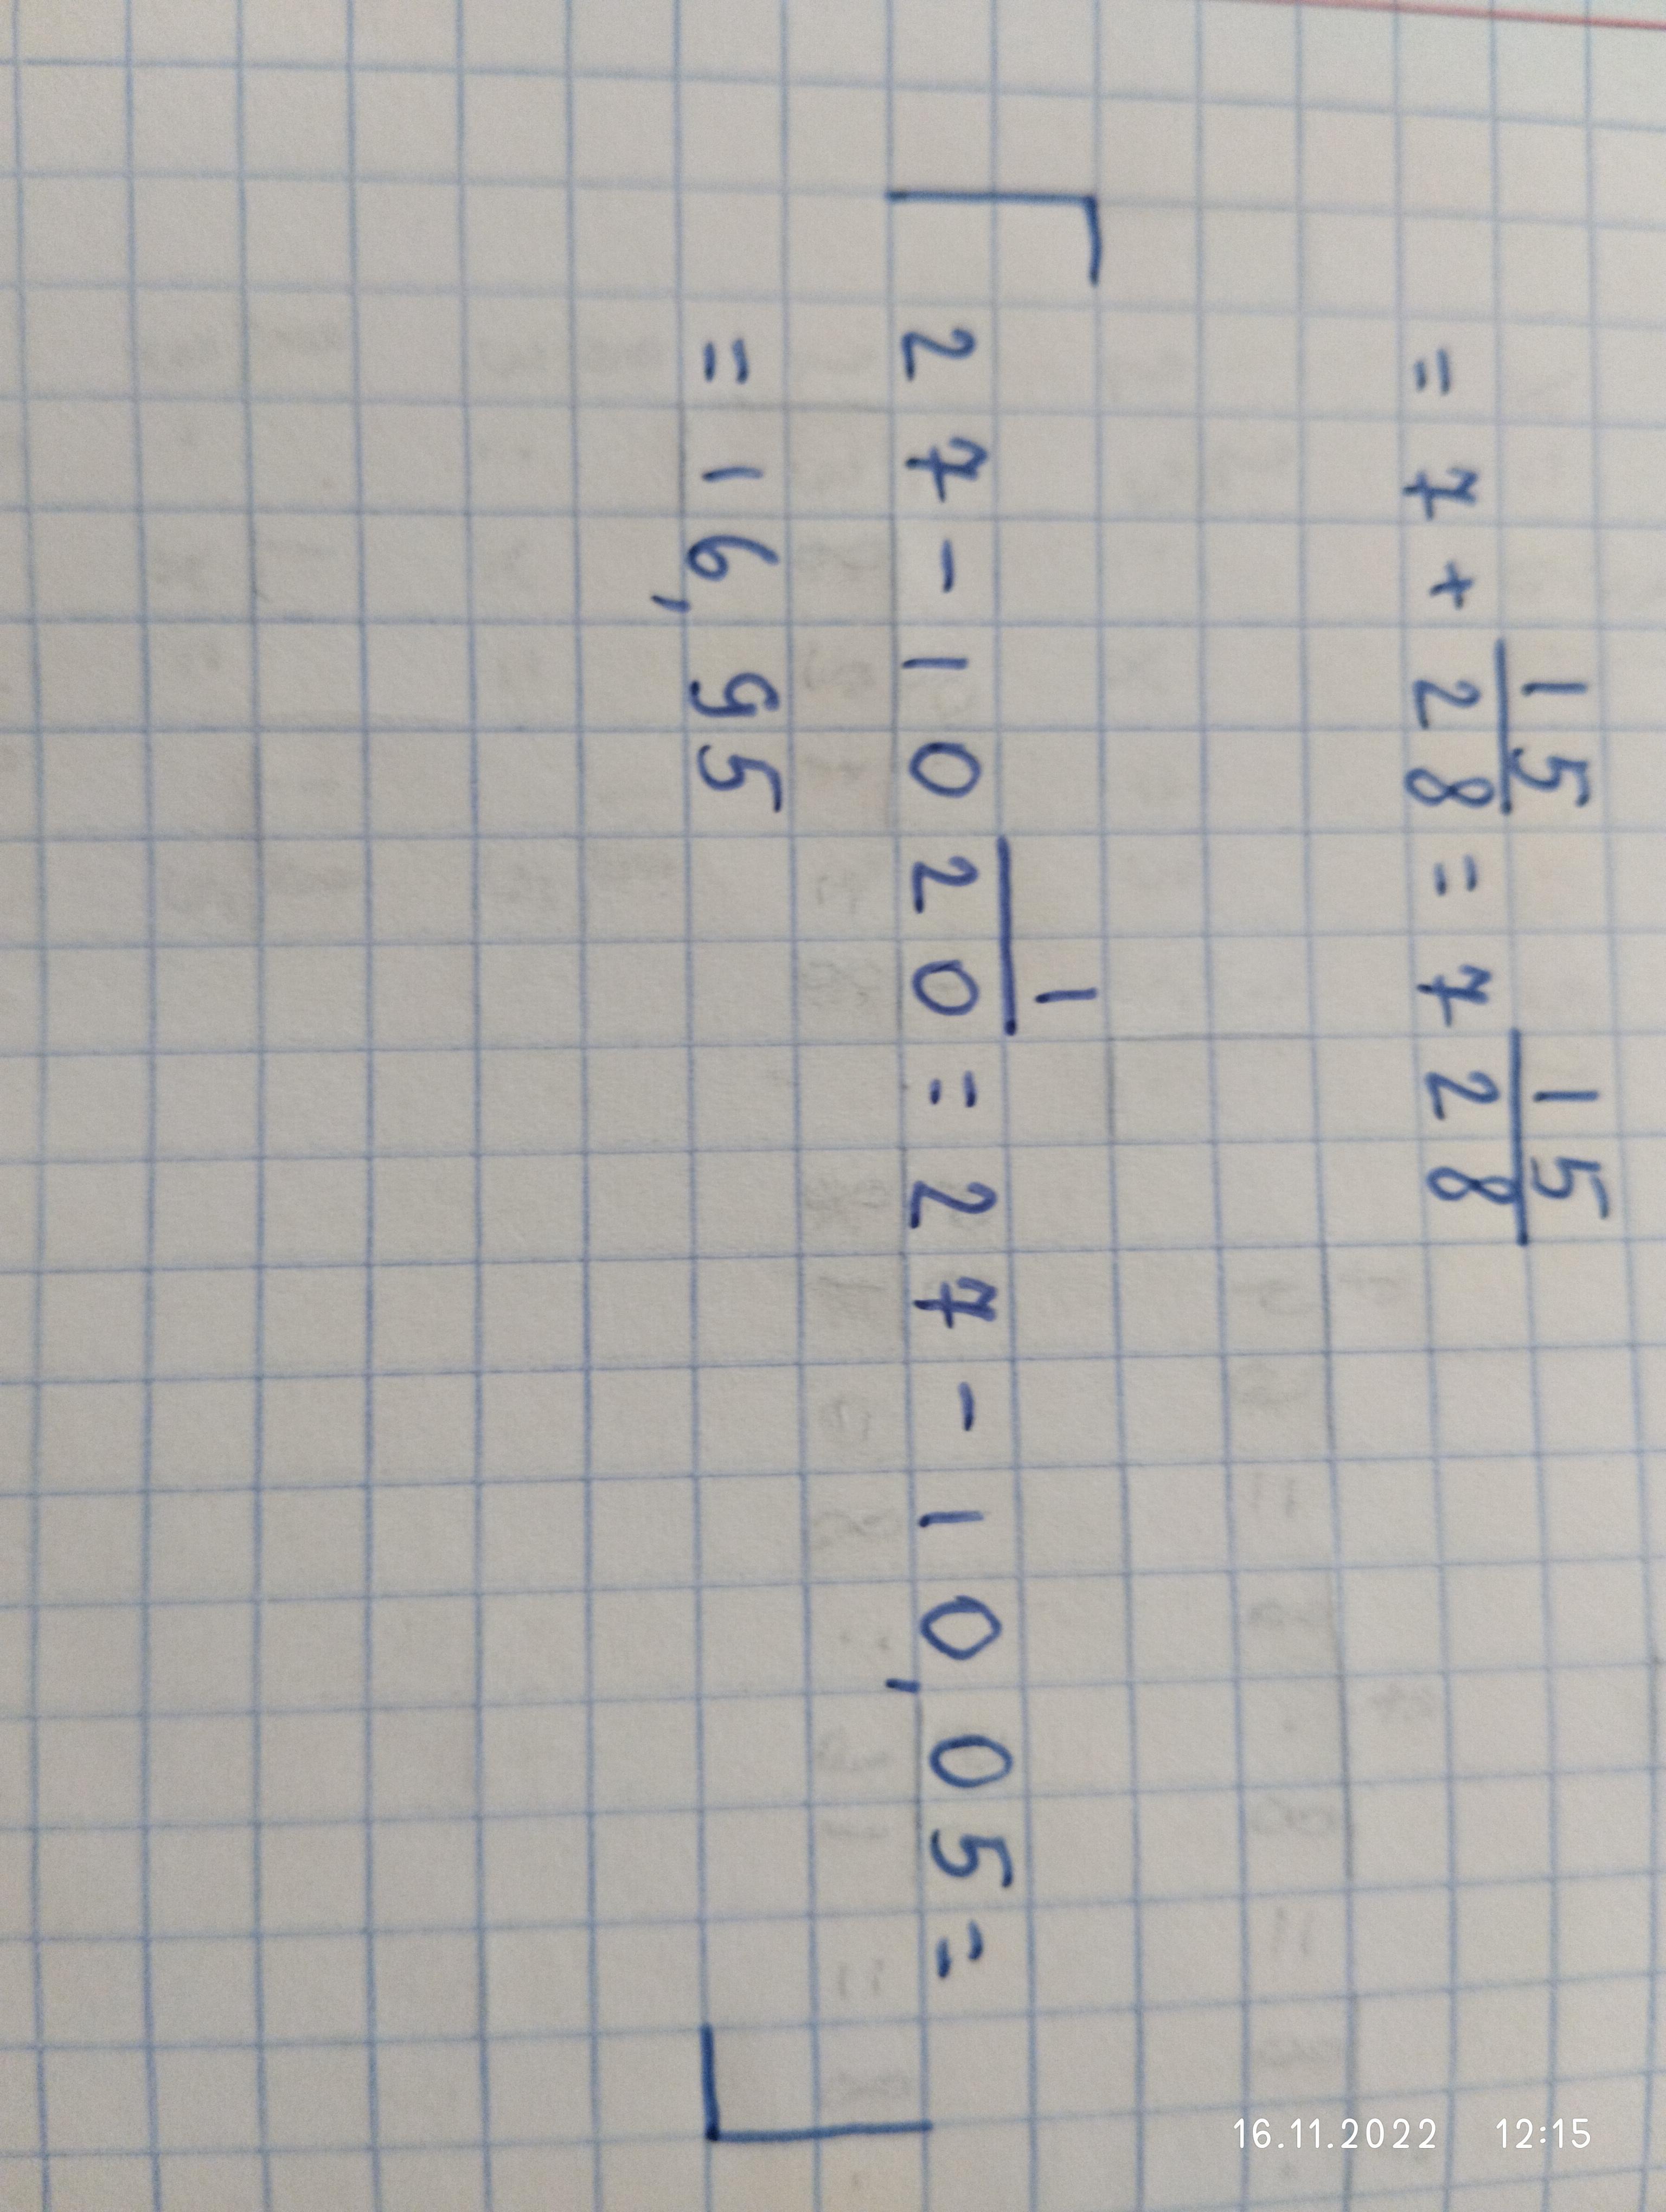 = 7 + 15/28 = 7 15/28
27 - 10 1/20 = 27 - 10,05 =
= 16,95
16.11.2022 12:15